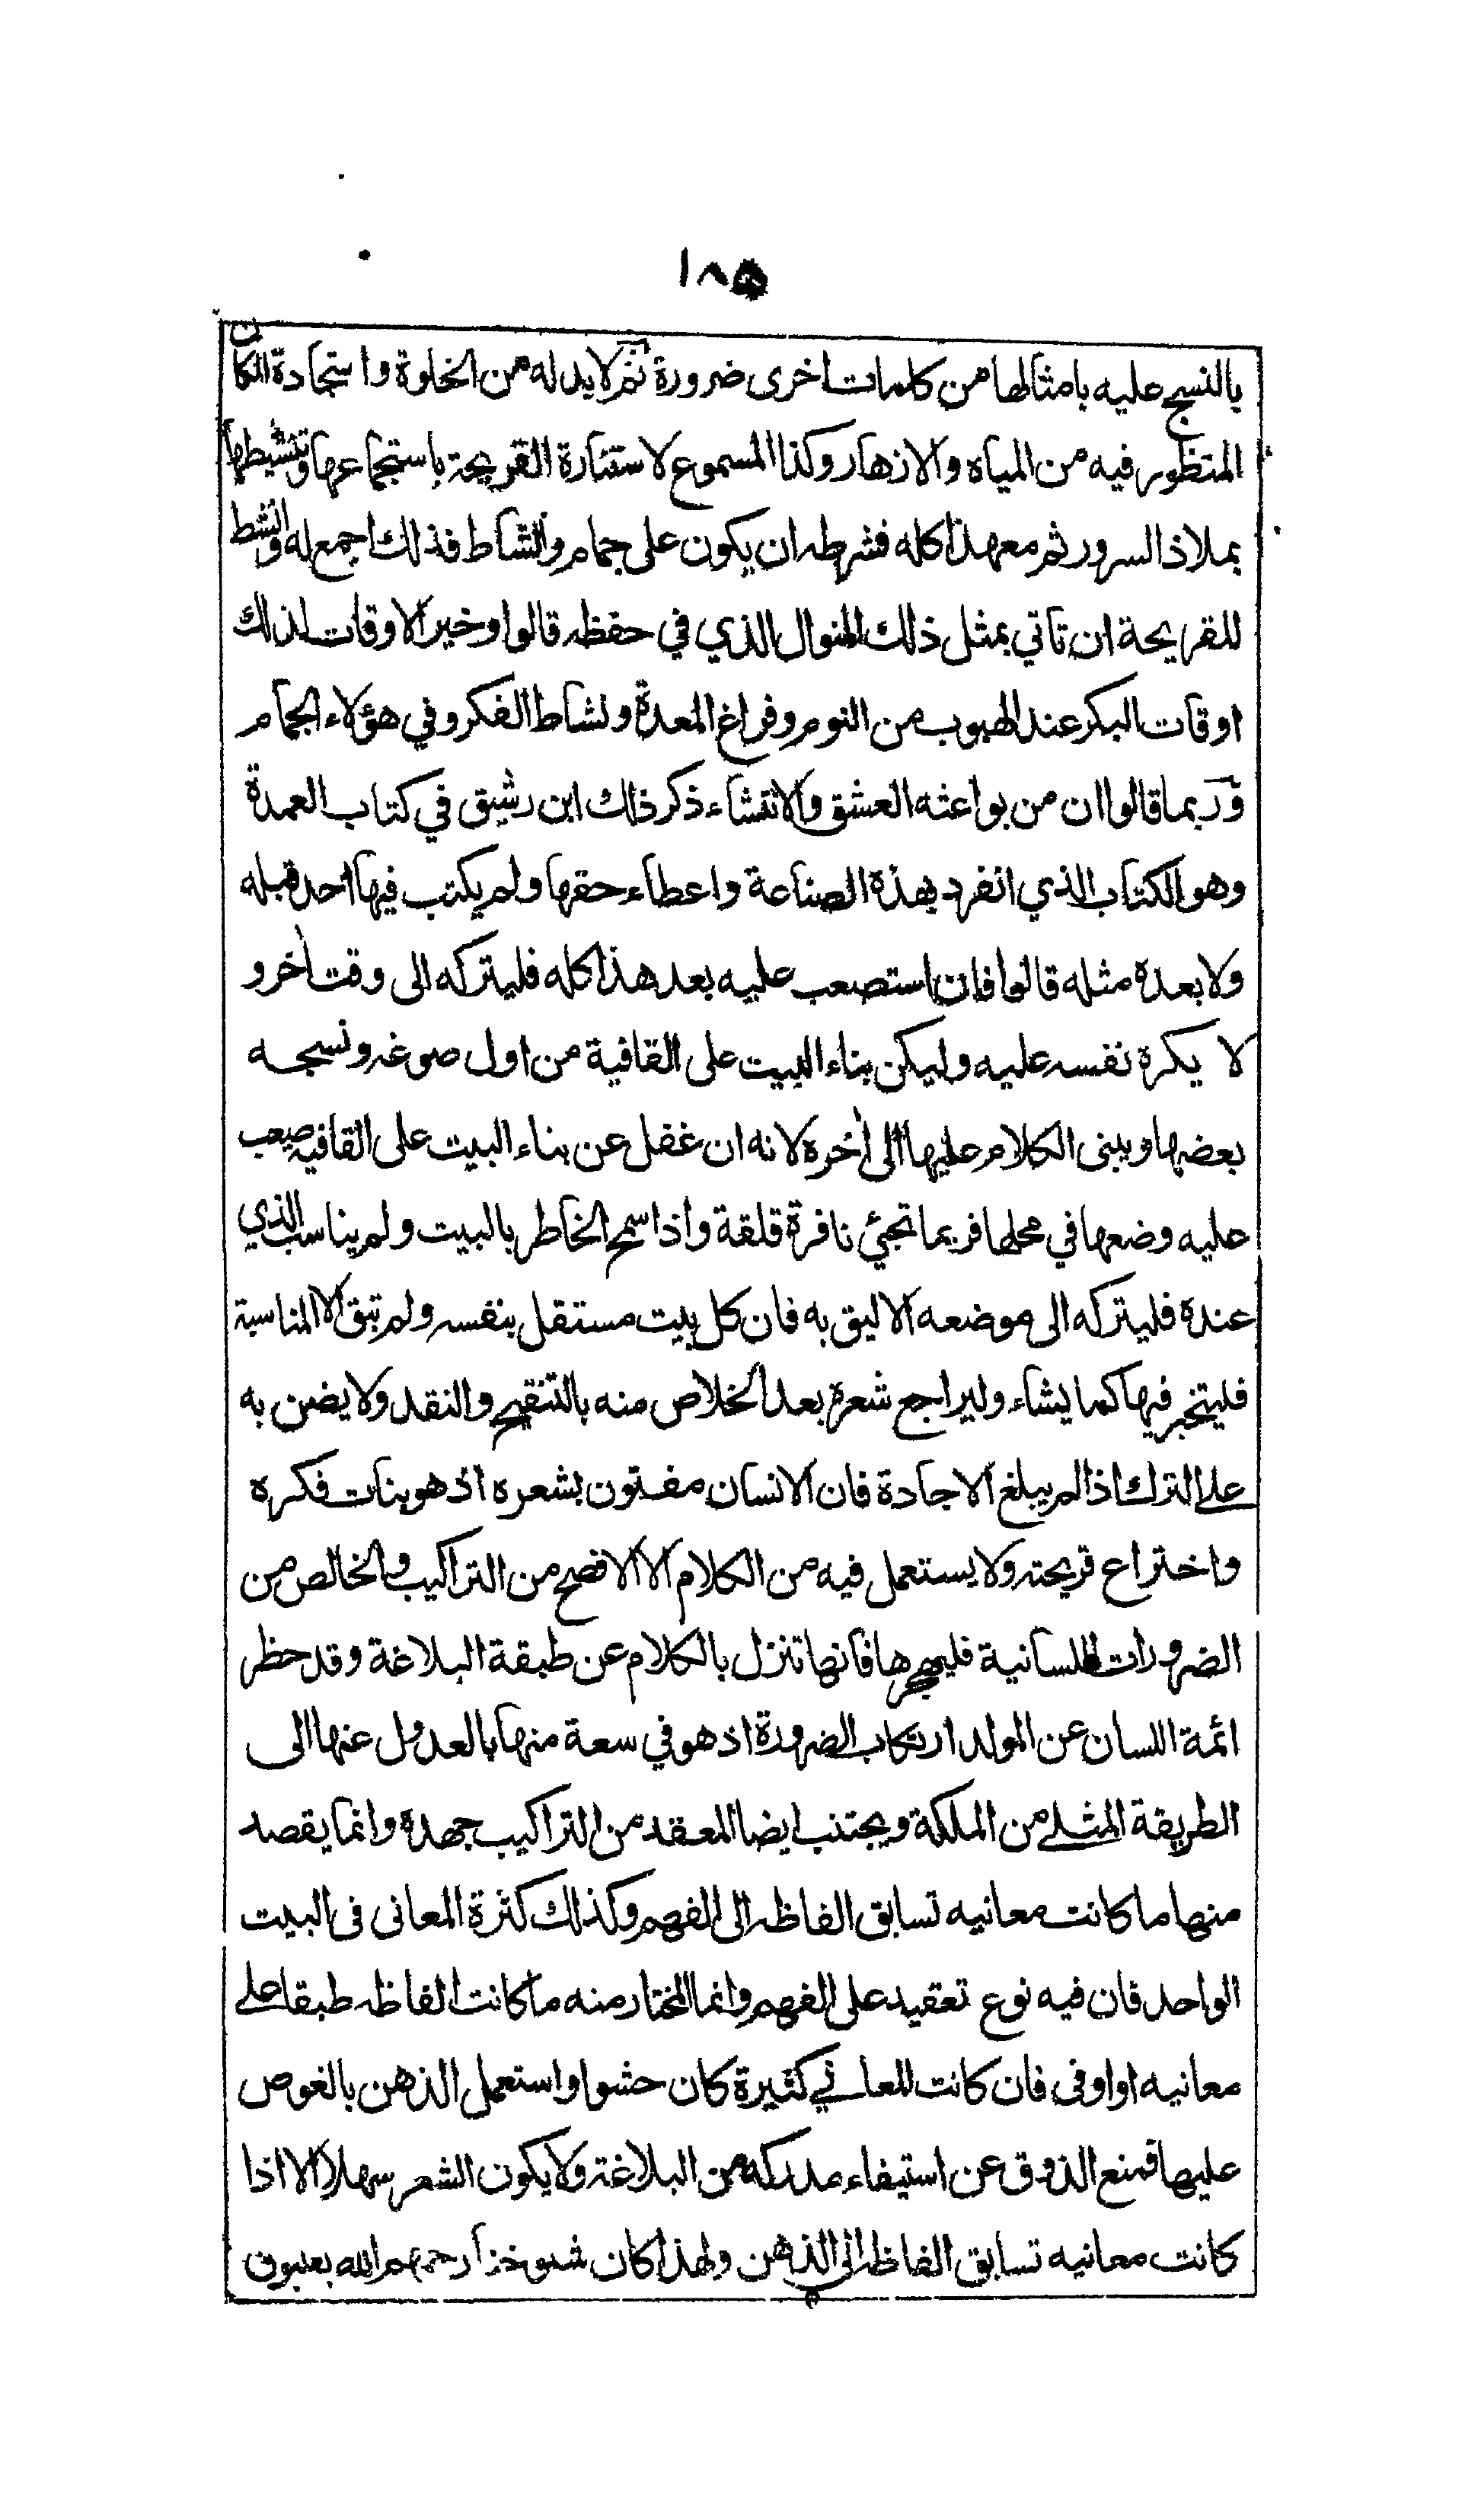 ١٨٥
بالنسج عليه بامثالها من كلمات اخرى ضرورة ثم لا بد له من الخلوة واستجادة المكان
المنظور فيه من المياه والازهار وكذا المسموع لاستثارة القريحة باستجماعها وتنشيطها
بملاذ السرور ثم مع هذا كله فشرطه ان يكون على جمام ونشاط فذلك اجمع له وانشط
للقريحة ان تاتي بمثل ذلك المنوال الذي في حفظه قالوا وخير الاوقات لذلك
اوقات البكر عند الهبوب من النوم وفراغ المعدة ونشاط الفكر وفي هؤلاء الجمام
وربما قالوا ان من بواعثه العشق والانتشاء ذكر ذلك ابن رشيق في كتاب العمدة
وهو الكتاب الذي انفرد بهذه الصناعة واعطاء حقها ولم يكتب فيها احد قبله
ولا بعده مثله قالوا فان استصعب عليه بعد هذا كله فليتركه الى وقت اخر و
لا يكره نفسه عليه وليكن بناء البيت على القافية من اول صوغه ونسجه
بعضها ويبنى الكلام عليها الى اخره لانه ان غفل عن بناء البيت على القافيه صعب
عليه وضعها في محلها فربما تجئي نافرة قلقة واذا سمح الخاطر بالبيت ولم يناسب الذي
عنده فليتركه الى موضعه الاليق به فان كل بيت مستقل بنفسه ولم تبق الا المناسبة
فليتخير فيها كما يشاء وليراجع شعره بعد الخلاص منه بالتنقيح والنقد ولا يضن به
على الترك اذا لم يبلغ الاجادة فان الانسان مفتون بشعره اذ هو بنات فكره
واختراع قريحته ولا يستعمل فيه من الكلام الا الافصح من التراكيب والخالص من
الضرورات اللسانية فليهجرها فانها تنزل بالكلام عن طبقة البلاغة وقد حظر
ائمة اللسان عن المولد ارتكاب الضرورة اذ هو في سعة منها بالعدول عنها الى
الطريقة المثلى من الملكة ويجتنب ايضا المعقد من التراكيب جهده وانما يقصد
منها ما كانت معانيه تسابق الفاظه الى الفهم وكذلك كثرة المعانى فى البيت
الواحد فان فيه نوع تعقيد على الفهم وانما المختار منه ما كانت الفاظه طبقا على
معانيه او اوفى فان كانت المعاني كثيرة كان حشوا واستعمل الذهن بالغوص
عليها فمنع الذوق عن استيفاء مدركه من البلاغة ولا يكون الشعر سهلا الا اذا
كانت معانيه تسابق الفاظه الى الذهن ولهذا كان شيوخنا رحمهم الله يعيبون